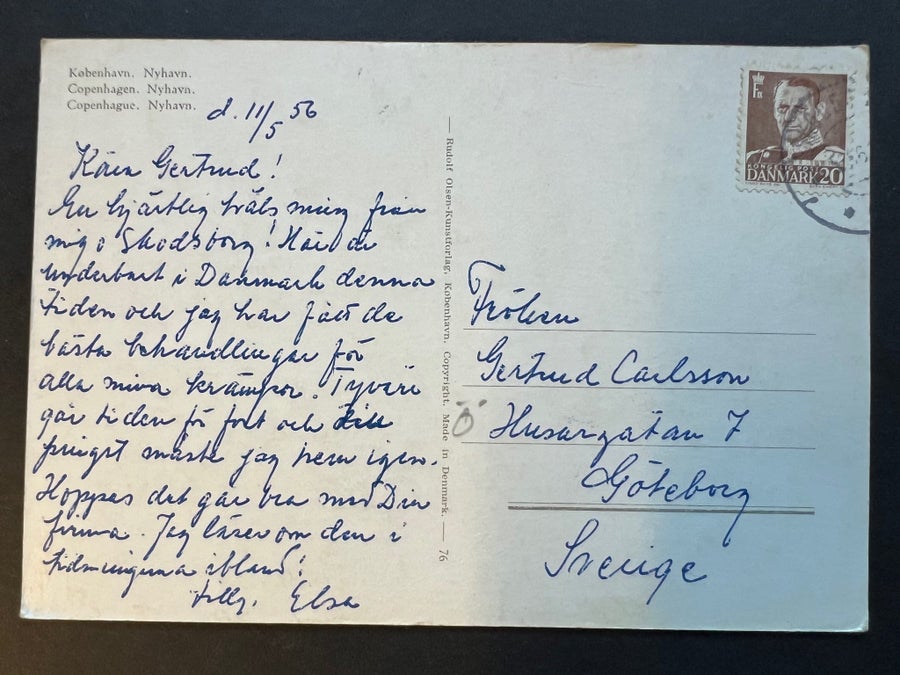 København. Nyhavn.
Copenhagen. Nyhavn.
Copenhague. Nyhavn.
d. 11/5 56
Kära Gertrud!
En hjärtlig hälsning från
mig o Skodsborg! Här är
underbart i Danmark denna
tiden och jag har fått de
bästa behandlingar för
alla mina krämpor. Tyvärr
går tiden för fort och till
pingst måste jag hem igen.
Hoppas det går bra med Din
firma. Jag läser om den i
tidningarna ibland!
Elsa
Rudolf Olsen-Kunstforlag, København. Copyright. Made in Denmark. — 76
KONGELIG POST
DANMARK 20
Fröken
Gertrud Carlsson
Husargatan 7
Göteborg
Sverige
Ö